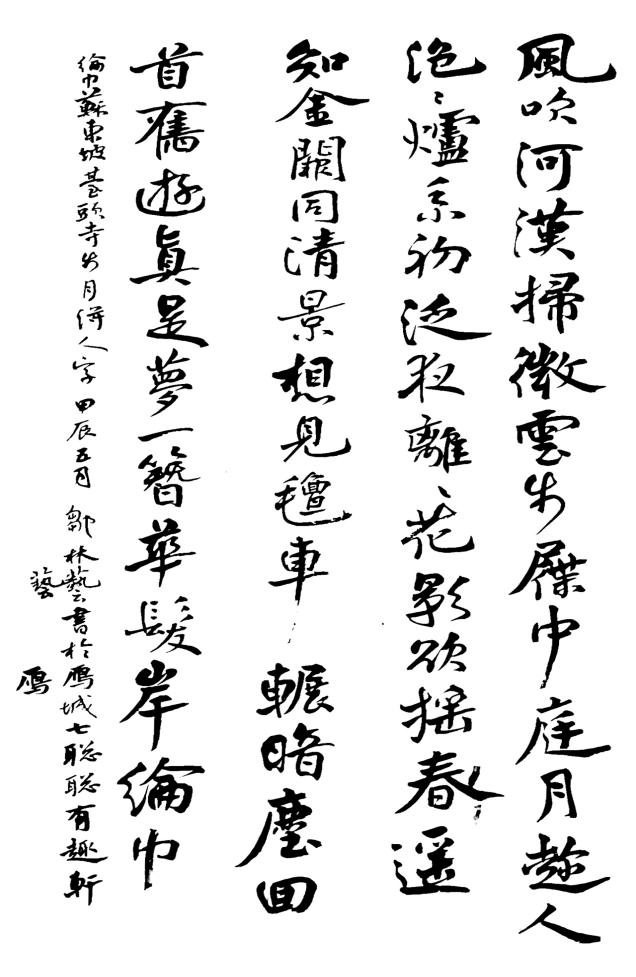 風吹河漢掃微雲步屧中庭月趂人
浥〻爐香初泛夜離〻花影欲搖春遥
知金闕同清景想見氈車輾暗塵回
首舊遊眞是夢一簪華髮岸綸巾
綸巾蘇東坡臺頭寺步月得人字甲辰五月 鄒林藝書於鴈城七聪聪有趣軒
藝
鴈